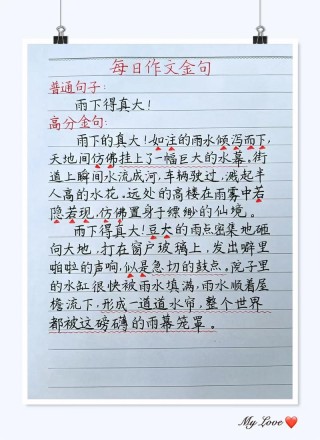 每日作文金句
普通句子:
雨下得真大!
高分金句:
雨下的真大!如注的雨水倾泻而下,
天地间仿佛挂上了一幅巨大的水幕。街
道上瞬间水流成河,车辆驶过,溅起半
人高的水花。远处的高楼在雨雾中若
隐若现,仿佛置身于缥缈的仙境。
雨下得真大!豆大的雨点密集地砸
向大地,打在窗户玻璃上,发出噼里
啪啦的声响,似是急切的鼓点。院子里
的水缸很快被雨水填满,雨水顺着屋
檐流下,形成一道道水帘,整个世界
都被这磅礴的雨幕笼罩。
My Love